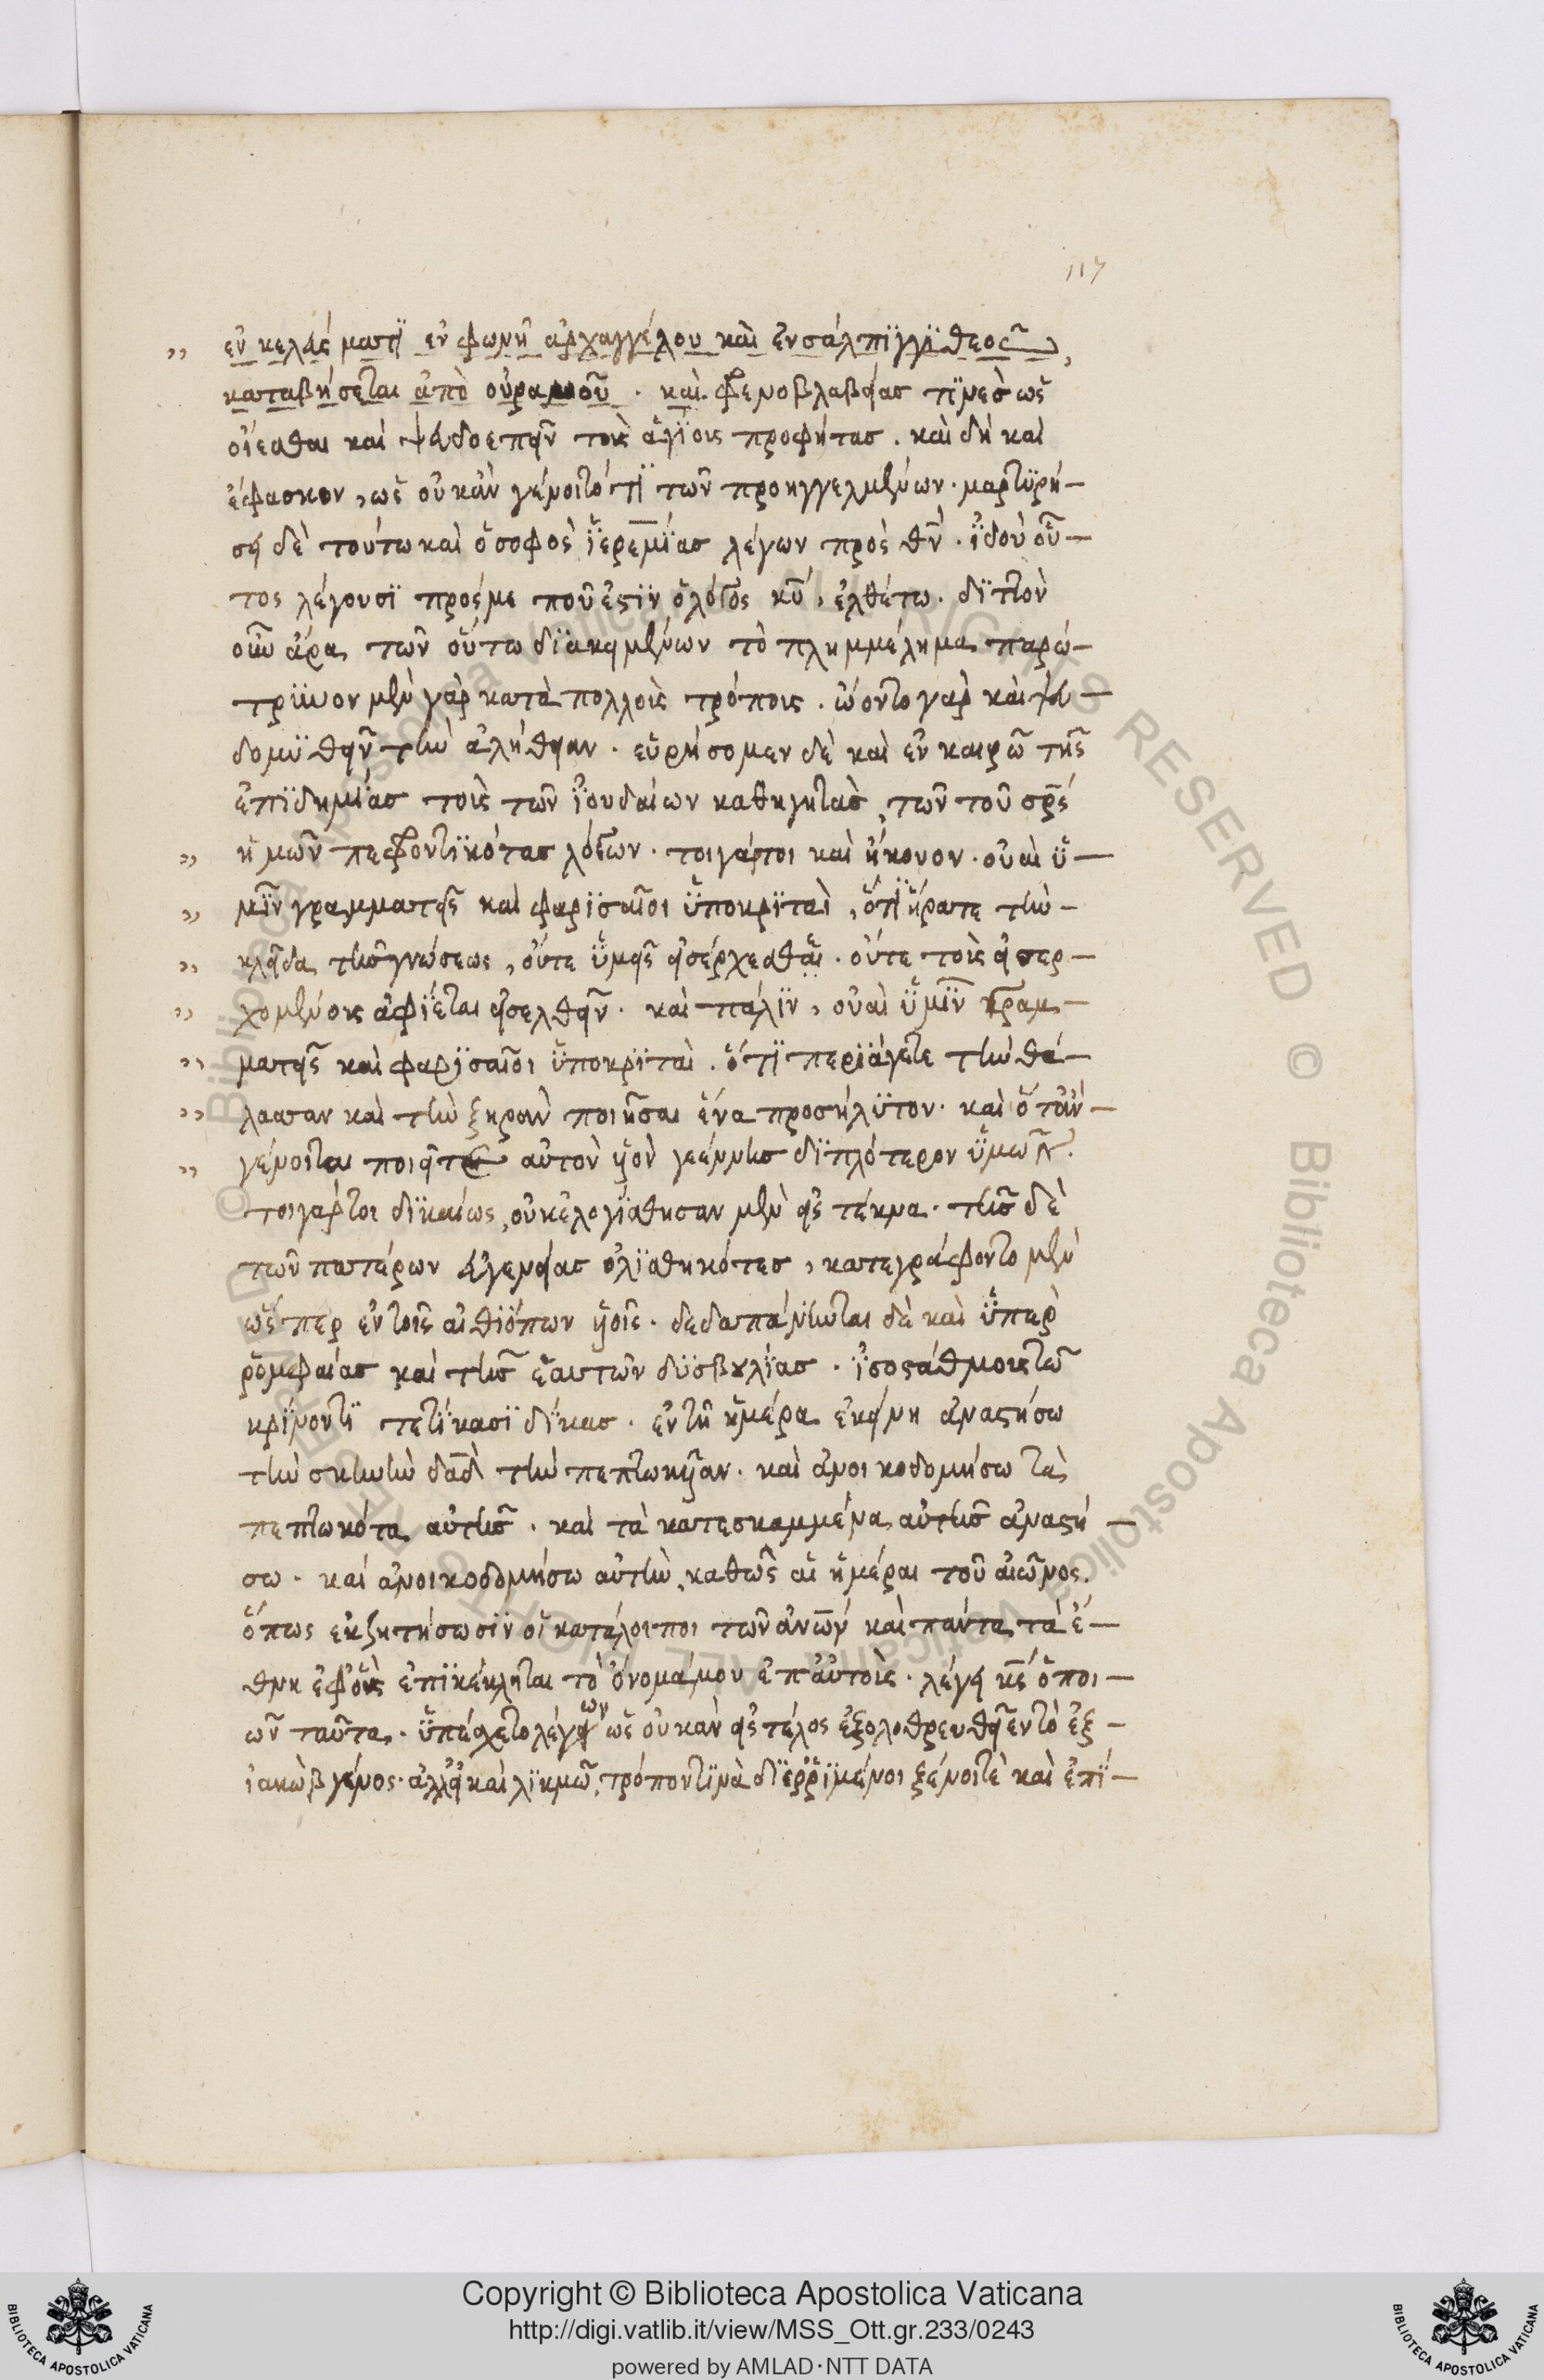 117
„ ἐν κελεύσματι ἐν φωνῇ ἀρχαγγέλου καὶ ἐν σάλπϊγγϊ θεοῦ
καταβήσεται ἀπὸ οὐρανοῦ · καὶ φρενοβλαβείας τϊνες ὡς
οἴεσθαι καὶ ψευδοεπεῖν τοὺς ἁγίους προφήτας · καὶ δὴ καὶ
ἔφασκον, ὡς οὐκ ἂν γένοιτό τϊ τῶν προηγγελμένων · μαρτϋρή—
σει δὲ τούτω καὶ ὁ σοφὸς ἱερεμίας λέγων πρὸς θν̅ · ἰδοὺ οὗ—
τος λέγουσϊ πρός με ποῦ ἐστϊν ὁ λόγος κυ̅, ἐλθέτω · διττὸν
οὖν ἄρα τῶν οὕτω δϊακειμένων τὸ πλημμέλημα παρώ—
τρϋνον μὲν γὰρ κατὰ πολλοὺς τρόπους · ὤοντο γὰρ καὶ ψευ—
δομϋθεῖν τὴν ἀλήθειαν · εὑρήσομεν δὲ καὶ ἐν καιρῶ τῆς
ἐπϊδημίας τοὺς τῶν ἰουδαίων καθηγητὰς, τῶν τοῦ σρ̅ς
„ ἡμῶν πεφροντϊκότας λόγων · τοιγάρτοι καὶ ἤκουον · οὐαὶ ὑ—
„ μῖν γραμματεῖς καὶ φαρϊσαῖοι ὑποκρϊταὶ, ὅτϊ ἤρατε τὴν—
„ κλεῖδα τῆς γνώσεως, οὔτε ὑμεῖς εἰσέρχεσθαι · οὔτε τοὺς εἰσερ—
„ χομένους ἀφϊέται εἰσελθεῖν · καὶ πάλϊν, οὐαὶ ὑμῖν γραμ—
„ ματεῖς καὶ φαρϊσαῖοι ὑποκρϊταὶ · ὅτϊ περϊάγετε τὴν θά—
„ λασσαν καὶ τὴν ξηρὰν ποιῆσαι ἕνα προσήλϋτον · καὶ ὅταν—
„ γένοιται ποιεῖτε αὐτὸν υἱὸν γεέννης δϊπλότερον ὑμῶν.
τοιγάρτοι δϊκαίως, οὐκ ἐλογϊσθησαν μὲν εἰς τέκνα · τῆς δὲ
τῶν πατέρων εὐγενείας ὀλϊσθηκότες, κατεγράφοντο μὲν
ὥσπερ ἐν τοῖς αἰθϊόπων υἱοῖς · δεδαπάνηνται δὲ καὶ ὑπὲρ
ῥομφαίας καὶ τῆς ἑαυτῶν δϋσβουλίας · ἰσοστάθμους τῶ
κρίνοντϊ τετίκασϊ δίκας · ἐν τῆ ἡμέρα ἐκείνη ἀναστήσω
τὴν σκηνὴν δα̅δ τὴν πεπτωκυῖαν · καὶ ἀνοικοδομήσω τὰ
πεπτωκότα αὐτῆς · καὶ τὰ κατεσκαμμένα αὐτῆς ἀναστή—
σω · καὶ ἀνοικοδομήσω αὐτὴν, καθὼς αἱ ἡμέραι τοῦ αἰῶνος.
ὅπως ἐκζητήσωσϊν οἱ κατάλοιποι τῶν ἀνω̅ν καὶ πάντα τὰ ἔ—
θνη ἐφ οὓς ἐπϊκέκληται τὸ ὄνομά μου ἐπ αὐτοὺς · λέγει κς̅ ὁ ποι—
ῶν ταῦτα · ὑπέσχετο λέγων ὡς οὐκ ἂν εἰς τέλος ἐξολοθρευθεῖεν τὸ ἐξ—
ἰακὼβ γένος · ἀλλ εἰ καὶ λϊκμῶ, τρόπον τϊνὰ δϊερρϊμένοι ξένοι τὲ καὶ ἐπί—
Copyright © Biblioteca Apostolica Vaticana
http://digi.vatlib.it/view/MSS_Ott.gr.233/0243
powered by AMLAD·NTT DATA